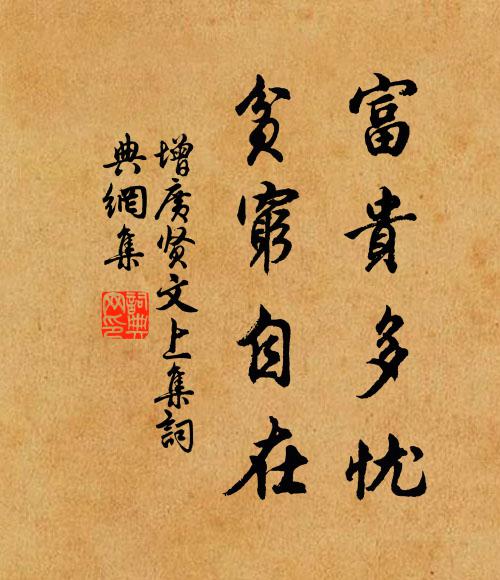 富貴多忧
貧窮自在
增廣贤文上集詞
典網集
詞典网印